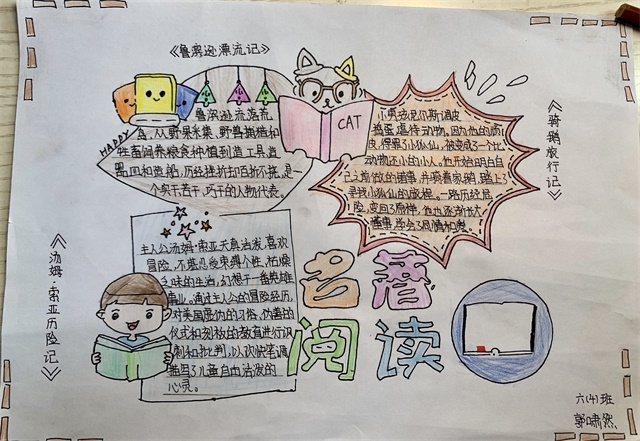 《鲁滨逊漂流记》
HAPPY
鲁滨逊流落荒
岛，从野果采集、野兽捕猎和
牲畜饲养粮食种植到造工具造
器皿和造船，历经挫折却百折不挠，是一
个实干苦干、巧干的人物代表。
CAT
小男孩尼尔斯调皮
捣蛋虐待动物。因为他的
皮，得罪了小狐仙，被变成了一个比
动物还小的小人。他开始明白自
己之前做的错事，并骑着家鹅，踏上了
寻找小狐仙的旅程。一路历经
险，变回了原样，他也逐渐长大
懂事，学会了
《骑鹅旅行记》
《汤姆·索亚历险记》
主人公汤姆·索亚天真活泼，喜欢
冒险，不堪忍受束缚个性、枯燥
乏味的生活，幻想干一番英雄
事业。通过主人公的冒险经历，
对美国虚伪的习俗、伪善的
仪式和刻板的教育进行讽
刺和批判，以欢快笔调
描写了儿童自由活泼的
心灵。
名著
阅读
六(4)班
郭啸然